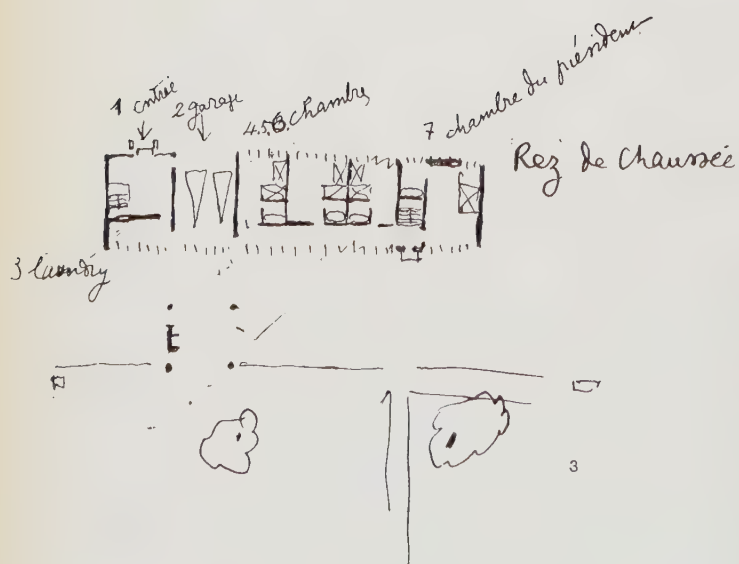 1 entrée
2 garage
4.5.6. Chambres
7 chambre du président
Rez de Chaussée
3 laundry
3